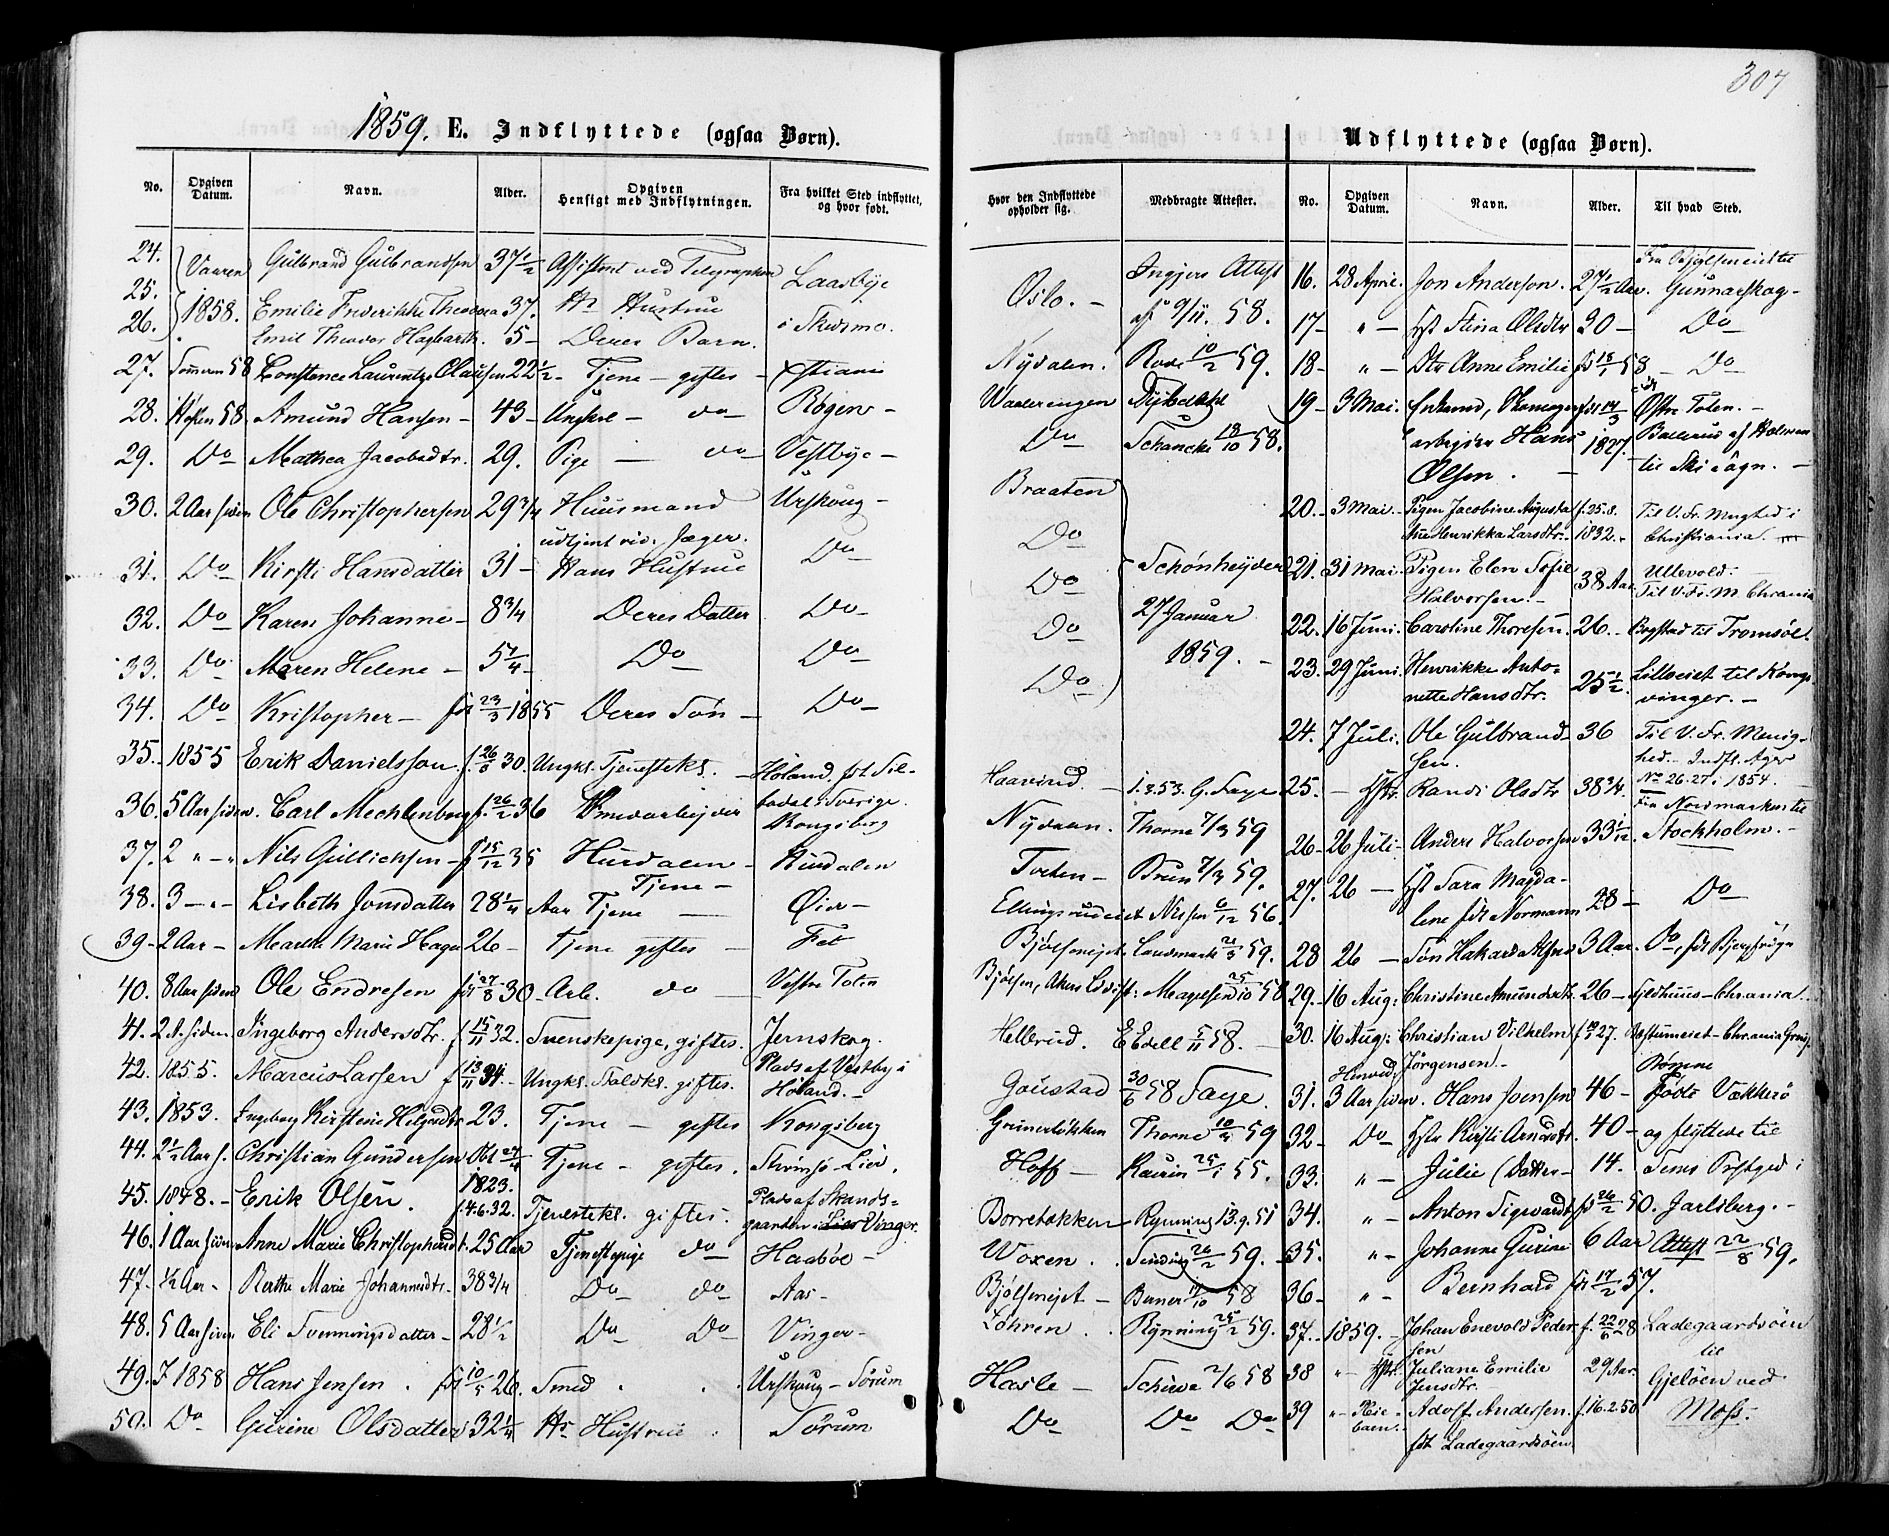 307
1859. E. Indflyttede (ogsaa Børn).
Udflyttede (ogsaa Børn).
No. Opgiven Datum. Navn. Alder. Opgiven Hensigt med Indflytningen. Fra hvilket Sted indflyttet, og hvor født. Hvor den Indflyttede opholder sig. Medbragte Attester.
24. Vaaren Gulbrand Gulbrandsen 37 1/2 Assistent ved Telegraphen Laasbye Oslo. Attest
25. 1858. Emilie Frederikke Theodora 37. Hs Hustrue i Skedsmo. af 9/11. 58.
26. Emil Theodor Hagbarth. 5 - Deres Barn.
27. Sommeren 58 Constence Laurentze Olausen 22 1/2 - Tjene - giftes - Xstiania Nydalen. Rode 10/2 59.
28. Høsten 58. Amund Hansen - 43 - Ungkl - do - Røgen - Waalerengen
29. Do Mathea Jacobsdtr. 29. Pige - do Vestbye - Do Schancke 18/10 58.
30. 2 Aar siden Ole Christophersen 29 3/4 Huusmand Urskoug - Braaten
udtjent vid. Jæger. Do
31. Do Kirsti Hansdatter 31 - Hans Hustrue Do Do Schønheyder
32. Do Karen Johanne - 8 3/4 Deres Datter Do Do 27 Januar
33. Do Maren Helene - 5 1/4 - Do Do Do 1859. -
34. Do Kristopher - fdt 23/3 1855 Deres Søn - Do
35. 1855 Erik Danielsson. f. 26/8 30. Ungk. Tjenesteks. - Høland. fdt Sil-bodal i Sverige. Haavind. 1.3.53. G. Faye
36. 5 Aar siden. Carl Mechlenburg f. 26/2 36 Kongsberg Nydalen. Thorne 7/3 59
37. 2 " - " Nils Gullichsen - f 15/12 35 Hurdalen - Hurdalen Tveten - Brun 7/3 59.
Tjene -
38. 3 - " - Lisbeth Jonsdatter 28 1/4 Aar Tjene - Øier - Ellingsrudeiet Nissen 6/12 56.
39 - 2 Aar - Marthe Marie Hagen 26 - Tjene giftes - Fet Bjølseneiet. Landmark 2/3 59.
40. 8 Aar siden Ole Endresen fdt 27/8 30 - Arb. do - Vestre Toten Bjølsen, Magelsen 25/10 58
41. 2 A. siden. Ingeborg Andersdtr. f 15/11 32. Svenskepige, giftes. Jernskog. Hellerud. E Edell 5/11 58.
42. 1855. Marcus Larsen f 13/11 31. Ungk. Staldk. giftes. Plads af Vestby i Høland. - Goustad 30/6 58 Faye.
43. 1853. Ingeborg Kirstine Helgesdtr 23. Tjene - giftes Kongsberg Grünerløkken Thorne 10/4 59
44. 2 1/2 Aar s. Christian Gundersen Tjene - giftes. Strømsø - Lier. Hoff - Kaurin 25/1 55.
45. 1848. - Erik Olsen. 1823. f. 4.6.32. Tjenesteks. giftes. Plads af Strands-gaarden i Lier Vinger. Borreløkken Rynning 13.9.51
46. 1 Aar siden Anne Marie Christophersdtr. 25 Aar Tjenestepige do Haabøe - Woxen. . Sinding 26/2 59.
47. 1/2 Aar - Rathe Marie Johannesdtr. 38 3/4 Do do Aas - Bjølseneiet - Berner 11/10 58
48. 5 Aar siden Eli Svenningsdatter - 28 1/2 Do Do Vinger - Løhren. . Rynning 25/2 59.
49. I 1858 Hans Jensen . fdt 10/5 26. Smed . . Urskoug - Sørum Hasle - Schive 2/6 58
50. Do Gurine Olsdatter 32 1/4 Hs Hustrue . Sørum Do Do Do
No. Opgiven Datum. Navn. Alder. Til hvad Sted.
16. 28 April. Jon Anderson. 27 1/2 Aar. Fra Bjølseneiet til Gunnarskog -
17 - " - Hst Stina Olsdtr 30 - Do
18 - " - Dtr Anne Emilie fdt 18/1 58 - Do
19 - 3 Mai. Enkemd, Skomager fdt 14/3 Østre Toten. -
arbeider Hans 1827. -
Olsen. til Ski Sogn. -
20. - 3 Mai - Pigen Jacobine Augusta f. 25.8. Til V. Fr. Mnghed i
Henrikka Larsdtr. 1832. Christiania.
21. 31 Mai. Pigen Elen Sofie 38 Aar Ullevold. -
Halvorsen. - Til V. Fr. M. Chrania
22. 16 Juni Caroline Thoresen. 26. - Bogstad til Tromsøe.
23. 29 Juni Henrikke Anto- 25 1/2. Lilleeiet til Kongs
nette Hansdtr. vinger. -
24. 7 Juli. Ole Gulbrand- 36 Til V. Fr. Menig-
sen. hed. Indfl. Ager
25. - Hstr. Randi Olsdtr 38 3/4. No 26.27 i 1854.
Fra Nordmarken til
26 - 26 Juli. Anders Halvorsen 33 1/12. Stockholm. -
27. 26 - Hst Sara Magda- 28 - Do
lene fdt Normann
28 26 - Søn Hakard Alfred 3 Aar. Do, fdt
29. 16 Aug: Christine Amundsdtr. 26 - Sjeldhuus - Chrania.
30. 16 Aug: Christian Vilhelm f. 27.
Jørgensen. -
31. 3 Aar siden. Hans Jensen 46 - Fødte Vækkerø
32 - Do Hstr Kirsti Arnesdtr. 40 - og flyttede til
33. " - Julie (Datter - 14. Sems Prstgd i
34. " - Anton Sigwardt fdt 26 50. Jarlsberg. -
35. " - Johanne Gurine 6 Aar Attest 22/8 59.
36 - " - Bernhard fdt 17/2 57.
37. 1859. - Johan Enevold Peder f. 22/6 28 Ladegaardsøen
sen til
38 " - Hstr. Juliane Emilie 29 Aar. Gjeløen ved
Jensdtr. -
39 " - Pleie Adolf Andersen. f. 16.2.50 Moss.
barn. - fdt Ladegaardsøen.